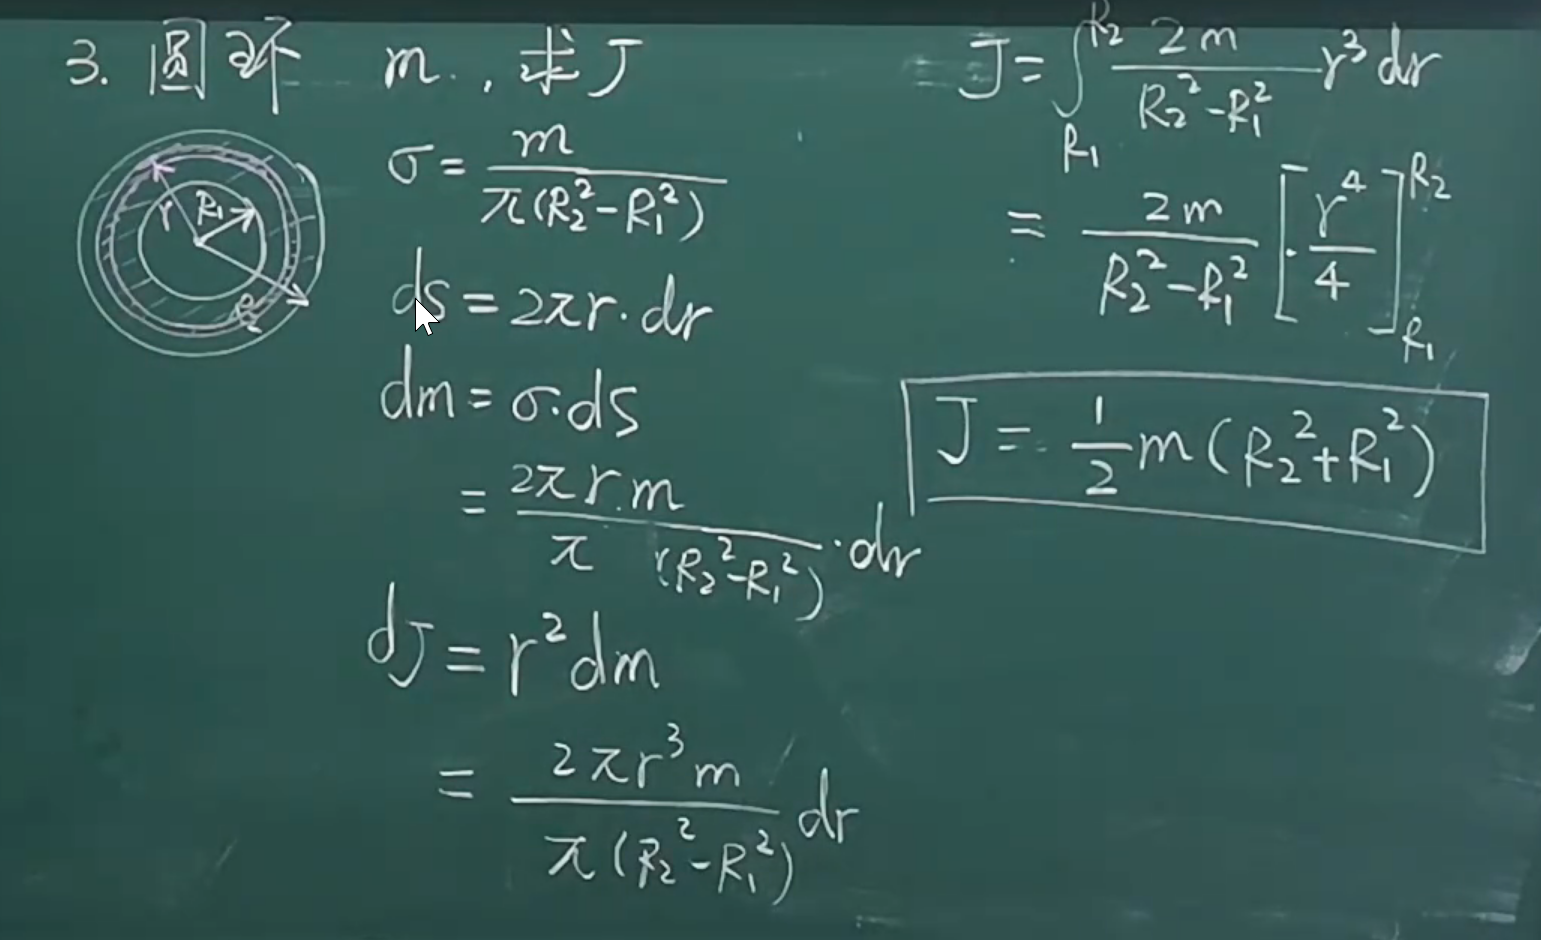 3. 圆环 m, 求J
r R₁ R₂
σ = m / π(R₂²-R₁²)
ds = 2πr·dr
dm = σ·ds
= 2πr·m / π (R₂²-R₁²) ·dr
dJ = r²dm
= 2πr³m / π(R₂²-R₁²) dr
J = ∫_{R₁}^{R₂} 2m / R₂²-R₁² r³dr
= 2m / R₂²-R₁² [·r⁴/4]_{R₁}^{R₂}
J = 1/2 m(R₂²+R₁²)